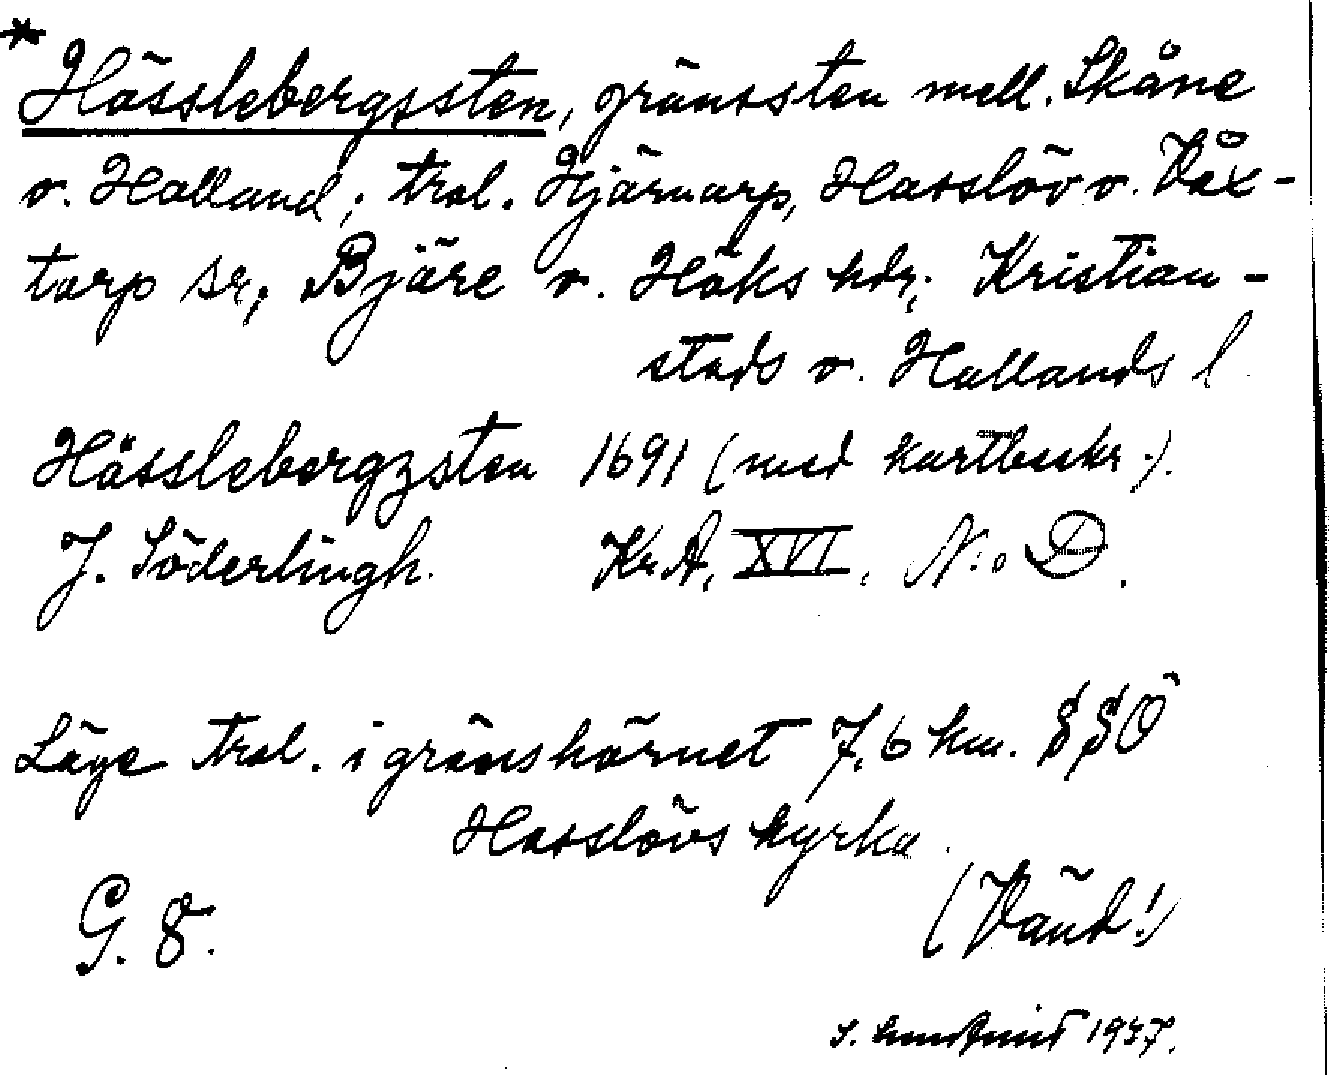 * Hässlebergssten, gränssten mell. Skåne
o. Halland; trol. Hjärnarp, Hasslöv o. Våx-
torp sr, Bjäre o. Höks hdr; Kristian-
stads o. Hallands l.
Hässlebergzsten 1691 (med kartbeskr.).
J. Söderlingh. Kr.A, XVI, N:o D.
Läge trol. i gränshörnet 7,6 km. SSÖ
Hasslövs kyrka.
G. 8. (Vänd!)
1937.